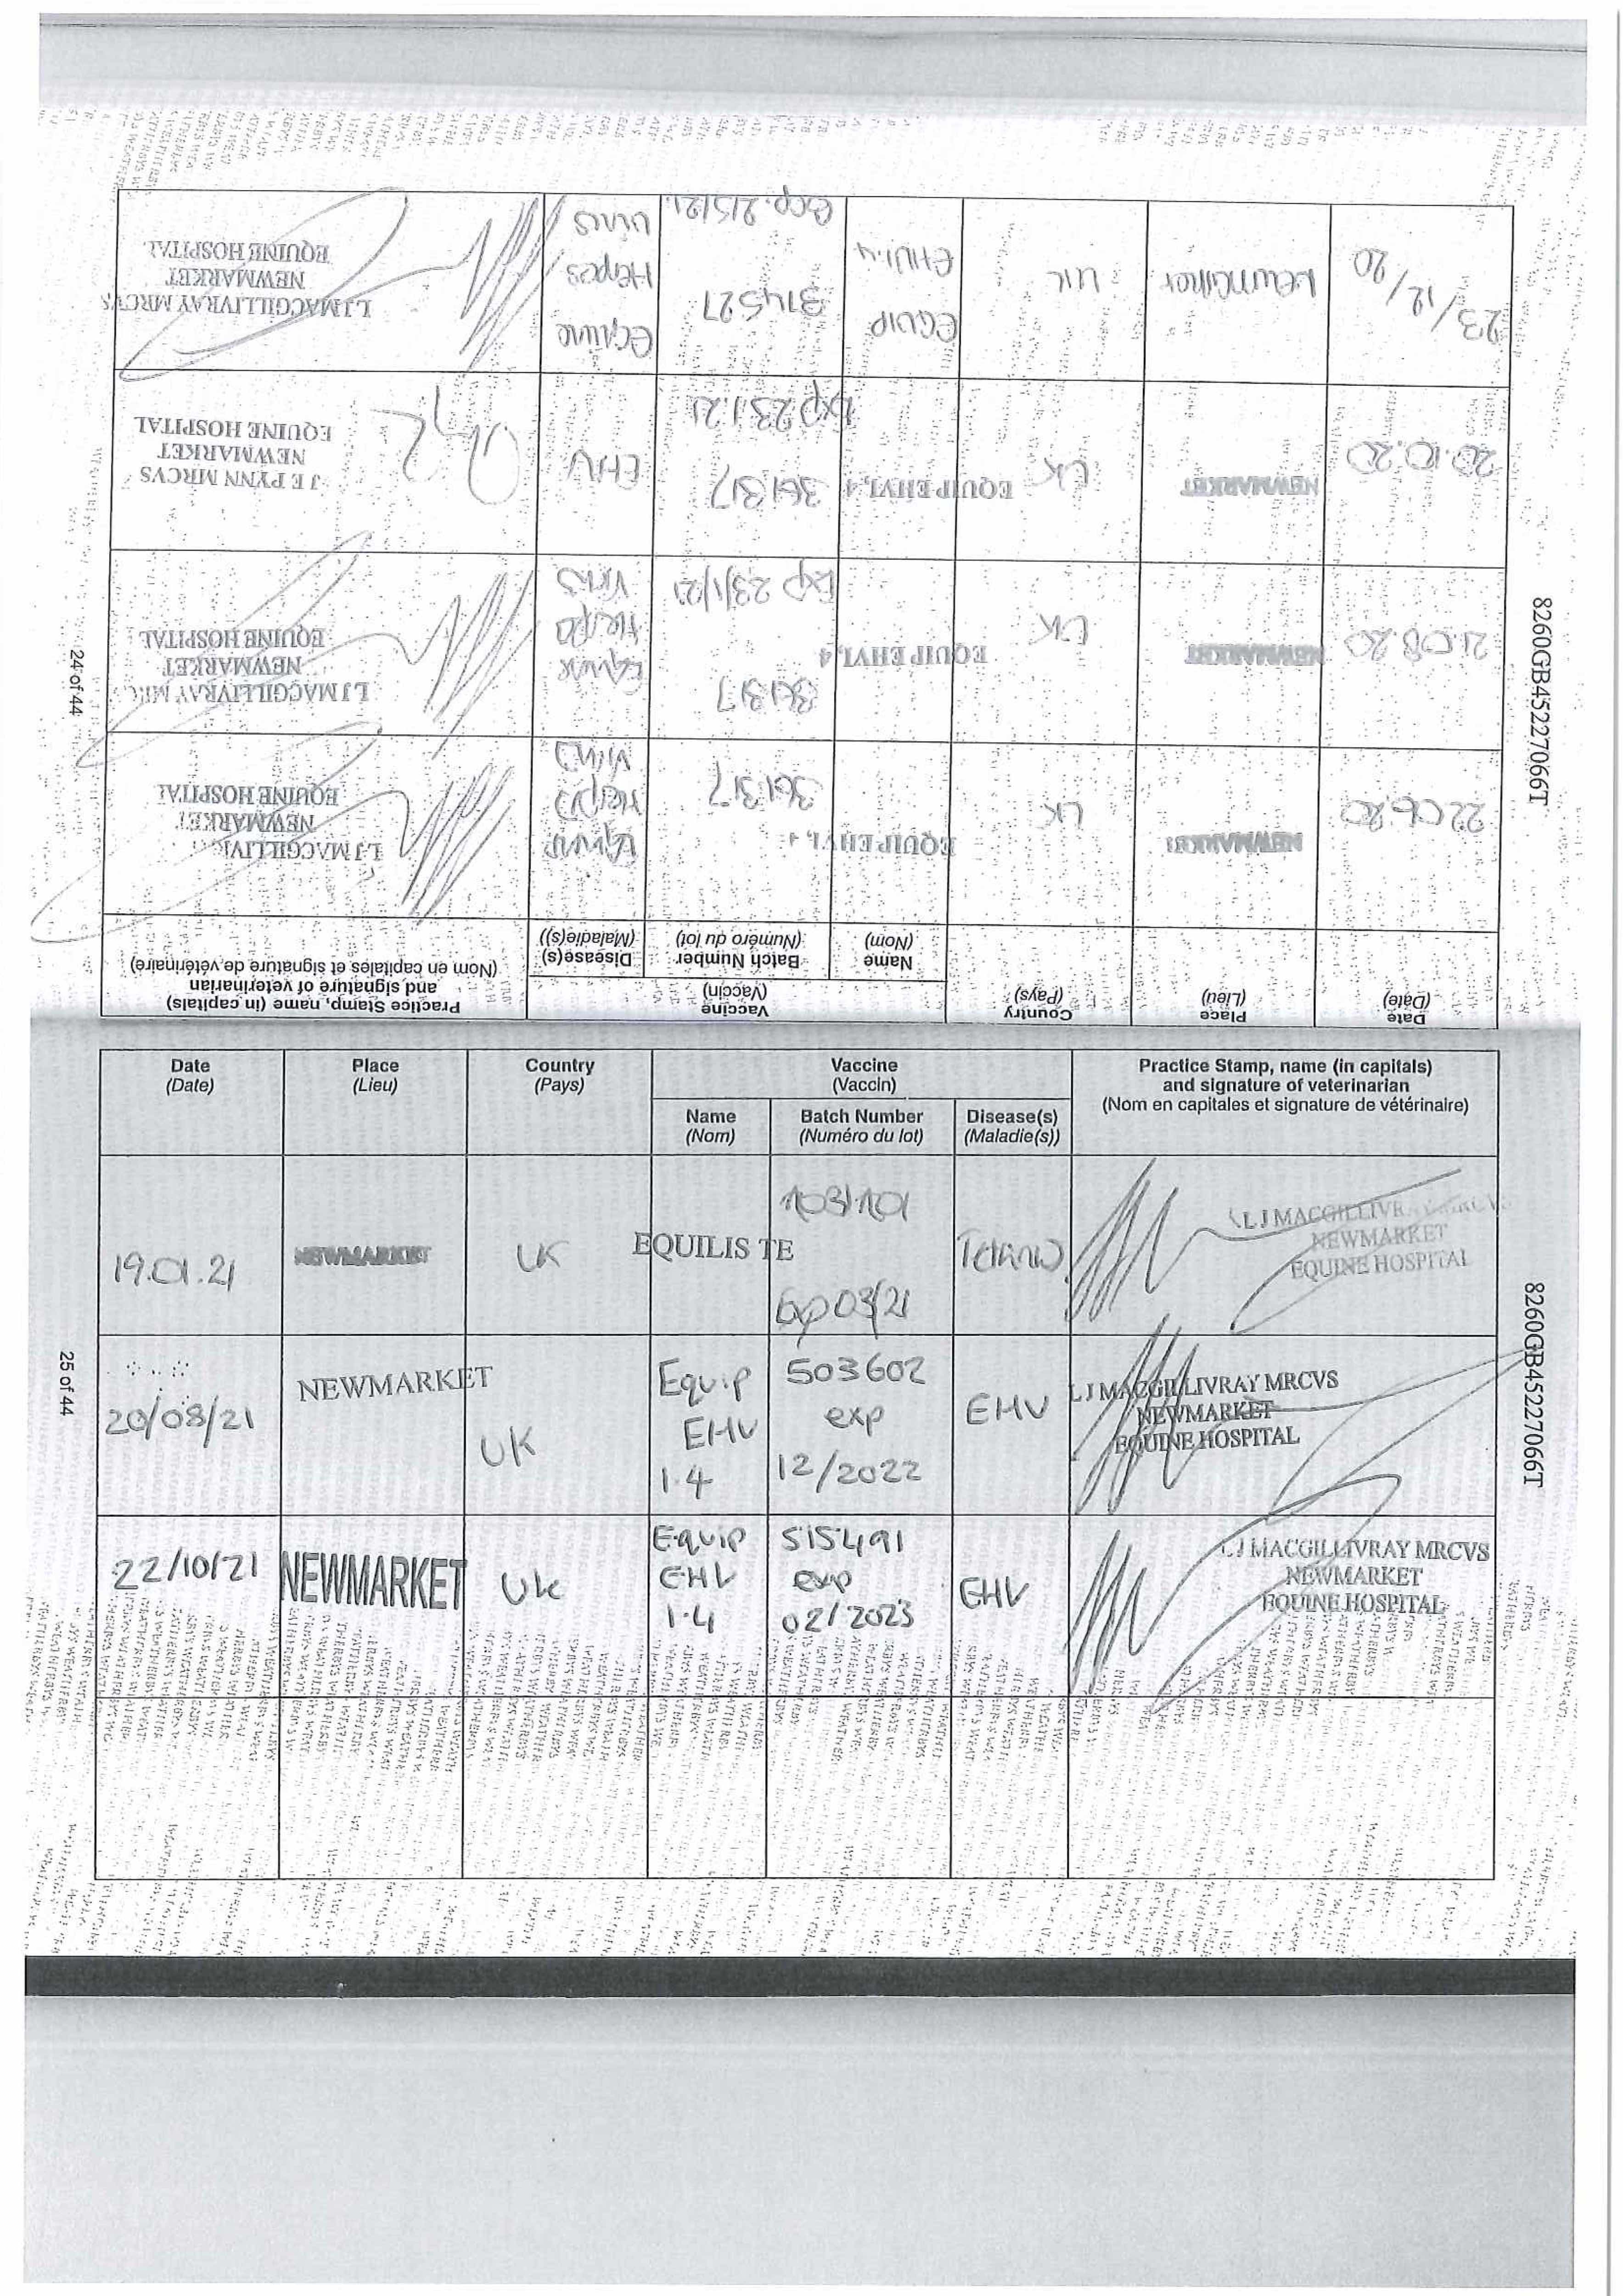 24 of 44
8260GB45227066T
Date
(Date)
Place
(Lieu)
Country
(Pays)
Vaccine
(Vaccin)
Name
(Nom)
Batch Number
(Numéro du lot)
Disease(s)
(Maladie(s))
Practice Stamp, name (in capitals)
and signature of veterinarian
(Nom en capitales et signature de vétérinaire)
22.06.20
NEWMARKET
UK
EQUIP EHV1,4
361317
L J MACGILLIVR
NEWMARKET
EQUINE HOSPITAL
21.08.20
NEWMARKET
UK
EQUIP EHV1,4
361317
Exp 23/1/21
Virus
L J MACGILLIVRAY MRC
NEWMARKET
EQUINE HOSPITAL
20.10.20
NEWMARKET
UK
EQUIP EHV1,4
361317
Exp 23.1.21
EHV
J E PYNN MRCVS
NEWMARKET
EQUINE HOSPITAL
23/12/20
Newmarket
UK
EQUIP
EHV1.4
374527
exp. 2/5/21.
Equine
Herpes
Virus
L J MACGILLIVRAY MRCVS
NEWMARKET
EQUINE HOSPITAL
25 of 44
8260GB45227066T
Date
(Date)
Place
(Lieu)
Country
(Pays)
Vaccine
(Vaccin)
Name
(Nom)
Batch Number
(Numéro du lot)
Disease(s)
(Maladie(s))
Practice Stamp, name (in capitals)
and signature of veterinarian
(Nom en capitales et signature de vétérinaire)
19.01.21
NEWMARKET
UK
EQUILIS TE
Exp 03/21
L J MACGILLIVR
NEWMARKET
EQUINE HOSPITAL
20/08/21
NEWMARKET
UK
Equip
EHV
1.4
503602
exp
12/2022
EHV
L J MACGILLIVRAY MRCVS
NEWMARKET
EQUINE HOSPITAL
22/10/21
NEWMARKET
UK
Equip
EHV
1.4
515491
exp
02/2023
EHV
L J MACGILLIVRAY MRCVS
NEWMARKET
EQUINE HOSPITAL